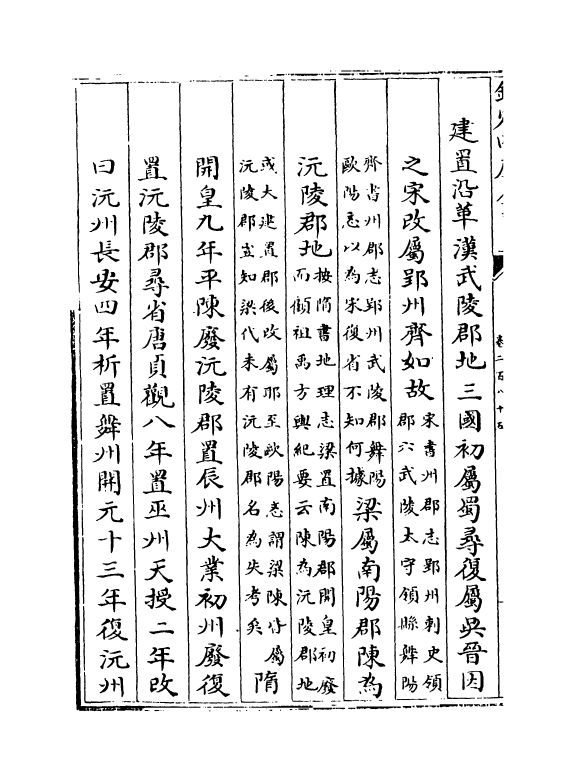 卷二百八十五
建置沿革漢武陵郡地三國初屬蜀尋復屬吳晉因
之宋改屬郢州齊如故宋書州郡志郢州刺史領郡六武陵太守領縣舞陽
齊書州郡志郢州武陵郡舞陽歐陽忞以為宋復省不知何據梁屬南陽郡陳為
沅陵郡地按隋書地理志梁置南陽郡開皇初廢而顧祖禹方輿紀要云陳為沅陵郡地
或大建置郡後改屬耶至歐陽忞謂梁陳皆屬沅陵郡豈知梁代未有沅陵郡名為失考矣隋
開皇九年平陳廢沅陵郡置辰州大業初州廢復
置沅陵郡尋省唐貞觀八年置巫州天授二年改
曰沅州長安四年析置舞州開元十三年復沅州